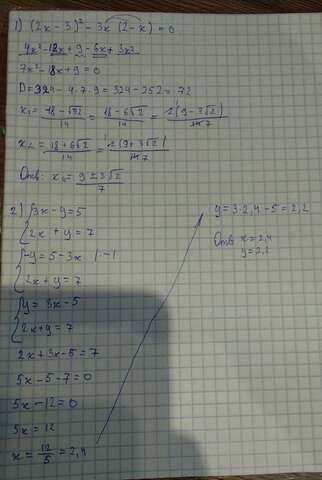 1) (2x - 3)² - 3x (2 - x) = 0
4x² - 12x + 9 - 6x + 3x²
7x² - 18x + 9 = 0
D = 324 - 4·7·9 = 324 - 252 = 72
x₁ = (18 - √72)/14 = (18 - 6√2)/14 = 2(9 - 3√2)/14 7
x₂ = (18 + 6√2)/14 = 2(9 + 3√2)/14 7
Отв: x₁ = (9 ± 3√2)/7
2) {3x - y = 5
{2x + y = 7
{-y = 5 - 3x | -1
{2x + y = 7
{y = 3x - 5
{2x + y = 7
2x + 3x - 5 = 7
5x - 5 - 7 = 0
5x - 12 = 0
5x = 12
x = 12/5 = 2,4
y = 3·2,4 - 5 = 2,2
Отв x = 2,4
y = 2,2